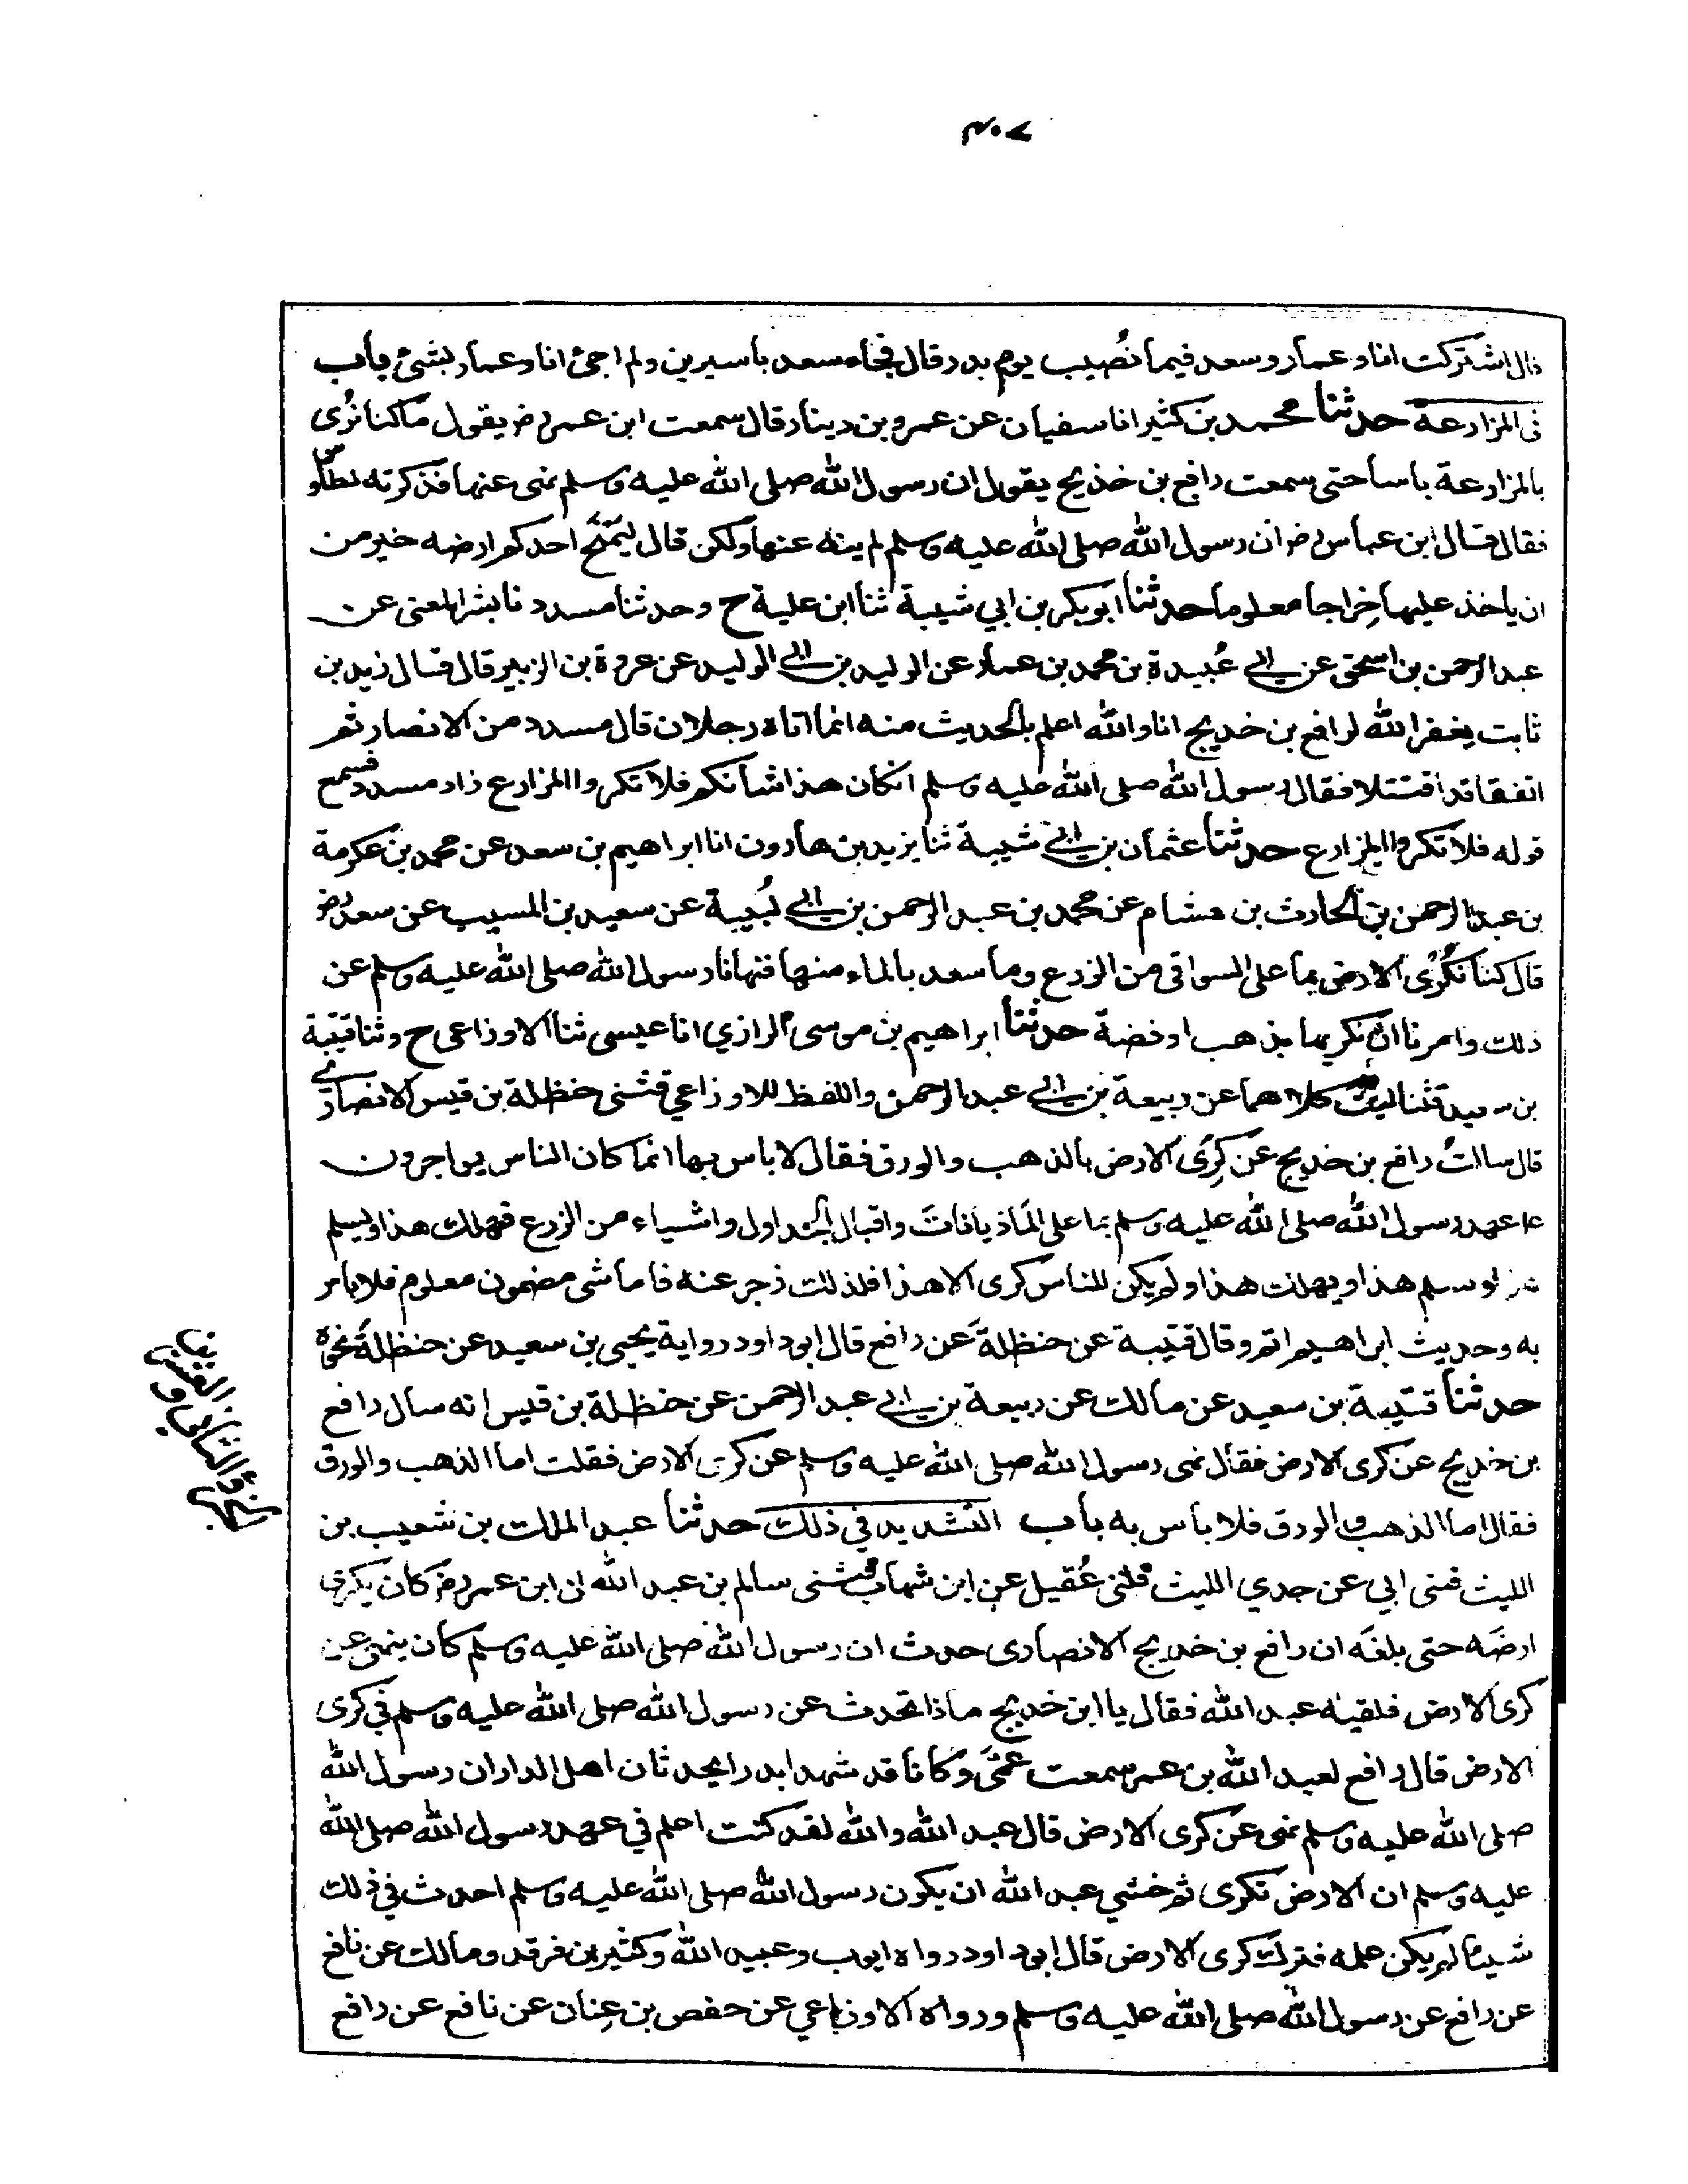 ٣٠٧
قال اشتركت انا وعمار وسعد فيما نُصيب يوم بدر قال فجاء سعد بأسيرين ولم اجئ انا وعمار بشئ باب
فى المزارعة حدثنا محمد بن كثير انا سفيان عن عمرو بن دينار قال سمعت ابن عمر رض يقول ما كنا نرُى
بالمزارعة باسا حتى سمعت رافع بن خديج يقول ان رسول الله صلى الله عليه وسلم نهى عنها فذكرته لطاوس
فقال قال ابن عباس رض ان رسول الله صلى الله عليه وسلم لم ينه عنها ولكن قال ليَمْنَح احدكم ارضه خير من
ان ياخذ عليها خِراجا معلوما حدثنا ابو بكر بن ابي شيبة ثنا ابن علية ح وحدثنا مسدد نا بشر المعنى عن
عبد الرحمن بن اسحق عن ابي عُبيدة بن محمد بن عمار عن الوليد بن ابي الوليد عن عروة بن الزبير قال قال زيد بن
ثابت يغفر الله لرافع بن خديج انا والله اعلم بالحديث منه انما اتاه رجلان قال مسدد من الانصار ثم
اتفقا قد اقتتلا فقال رسول الله صلى الله عليه وسلم ان كان هذا شأنكم فلا تكروا المزارع زاد مسدد فسمع
قوله فلا تكروا المزارع حدثنا عثمان بن ابي شيبة ثنا يزيد بن هارون انا ابراهيم بن سعد عن محمد بن عكرمة
بن عبد الرحمن بن الحارث بن هشام عن محمد بن عبد الرحمن بن ابي لَبُيبة عن سعيد بن المسيب عن سعد رض
قال كنا نكُرْى الارض بما على السواقى من الزرع وما سعد بالماء منها فنهانا رسول الله صلى الله عليه وسلم عن
ذلك وامرنا ان نكريها بذهب او فضة حدثنا ابراهيم بن موسى الرازي انا عيسى ثنا الاوزاعى ح وثنا قتيبة
بن سعيد ثنا ليث كلاهما عن ربيعة بن ابي عبد الرحمن واللفظ للاوزاعي حدثنى حنظلة بن قيس الانصاري
قال سالتُ رافع بن خديج عن كِرَى الارض بالذهب والورق فقال لا باس بها انما كان الناس يواجرون
على عهد رسول الله صلى الله عليه وسلم بما على المَاذيانات واقبال الجداول واشياء من الزرع فيهلك هذا ويسلم
هذا ويسلم هذا ويهلك هذا ولم يكن للناس كرى الا هذا فلذلك زجر عنه فاما شى مضمون معلوم فلا باس
به وحديث ابراهيم اتم وقال قتيبة عن حنظلة عن رافع قال ابو داود رواية يحيى بن سعيد عن حنظلة نحوه
حدثنا قتيبة بن سعيد عن مالك عن ربيعة بن ابي عبد الرحمن عن حنظلة بن قيس انه سأل رافع
بن خديج عن كرى الارض فقال نهى رسول الله صلى الله عليه وسلم عن كرى الارض فقلت اما الذهب والورق
فقال اما الذهب والورق فلا باس به باب التشديد في ذلك حدثنا عبد الملك بن شعيب بن
الليث حدثنى ابي عن جدي الليث حدثنى عُقيل عن ابن شهاب حدثنى سالم بن عبد الله ان ابن عمر رض كان يكرى
ارضَه حتى بلغه ان رافع بن خديج الانصارى حدث ان رسول الله صلى الله عليه وسلم كان ينهى عن
كرى الارض فلقيه عبد الله فقال يا ابن خديج ماذا تحدث عن رسول الله صلى الله عليه وسلم في كرى
الارض قال رافع لعبد الله بن عمر سمعت عمَّىَ وكانا قد شهدا بدرا يحدثان اهل الدار ان رسول الله
صلى الله عليه وسلم نهى عن كرى الارض قال عبد الله والله لقد كنت اعلم في عهد رسول الله صلى الله
عليه وسلم ان الارض تكرى ثم خشي عبد الله ان يكون رسول الله صلى الله عليه وسلم احدث في ذلك
شيئا لم يكن علمه فترك كرى الارض قال ابو داود رواه ايوب وعبيد الله وكثير بن فرقد ومالك عن نافع
عن رافع عن رسول الله صلى الله عليه وسلم ورواه الاوزاعي عن حفص بن عِنان عن نافع عن رافع